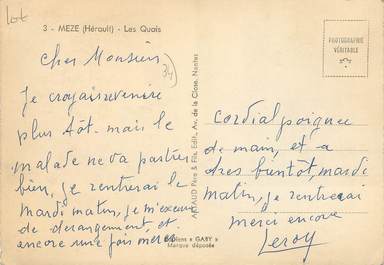 lot
3 - MEZE (Hérault) - Les Quais
PHOTOGRAPHIE
VÉRITABLE
34
Cher Monsieur
Je croyais revenire
plus tôt. mais le
malade ne va pas tres
bien, je rentrerai le
mardi matin, je m'excuse
de derangement, et
encore une fois merci
ARTAUD Père & Fils, Edit., Av. de la Close, Nantes
"GABY"
Marque déposée
Cordial poignee
de main, et a
tres bientôt, mardi
matin, je rentrerai
merci encore
Leroy